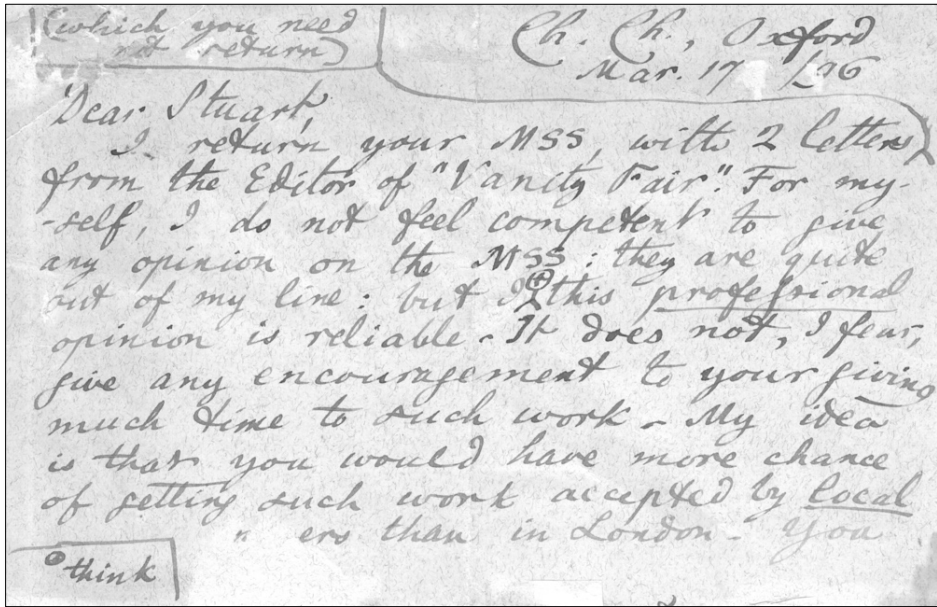 (which you need
not return)
Ch. Ch., Oxford
Mar. 17 /96
Dear Stuart,
I return your MSS, with 2 letters
from the Editor of "Vanity Fair". For my-
-self, I do not feel competent to give
any opinion on the MSS: they are quite
out of my line: but I ⊕ this professional
opinion is reliable. It does not, I fear,
give any encouragement to your giving
much time to such work. My idea
is that you would have more chance
of getting such work accepted by local
" ers than in London. You
⊕ think